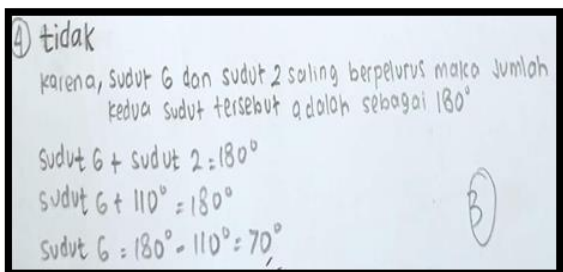 ④ tidak
Karena, sudut 6 dan sudut 2 saling berpelurus maka jumlah
kedua sudut tersebut adalah sebagai 180°
sudut 6 + sudut 2 = 180°
sudut 6 + 110° = 180°
sudut 6 = 180° - 110° = 70°
B